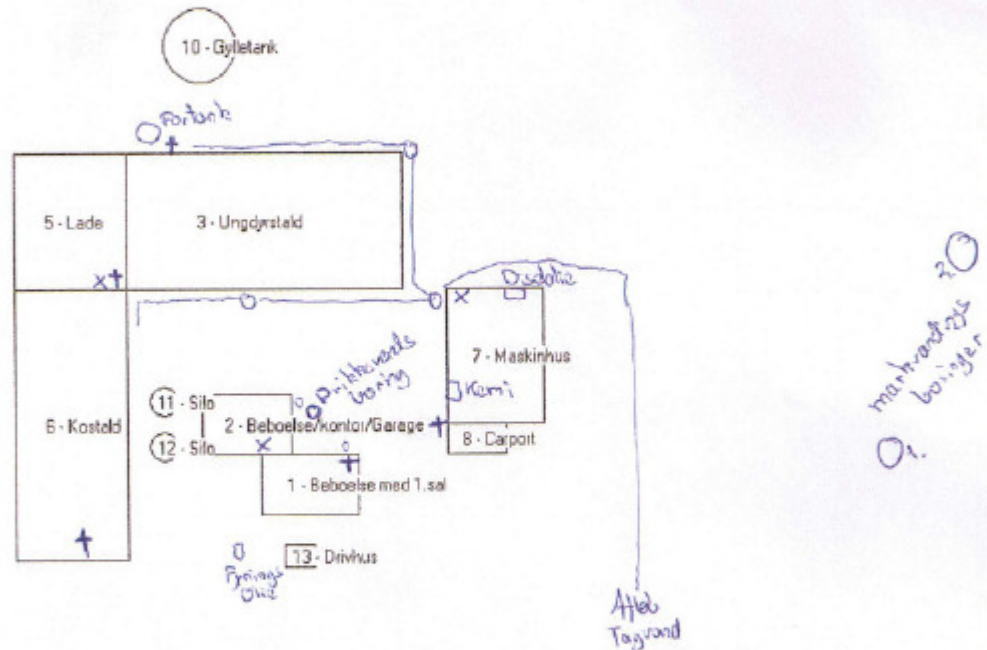 10 - Gylletank
Fortank
5 - Lade
3 - Ungdyrstald
Dieselolie
2.
markvandings
boringer
7 - Maskinhus
Drikkevands
boring
Kemi
11 - Silo
6 - Kostald
2 - Beboelse/kontor/Garage
12 - Silo
8 - Carport
1.
1 - Beboelse med 1.sal
13 - Drivhus
Fyrings
Olie
Afløb
Tagvand